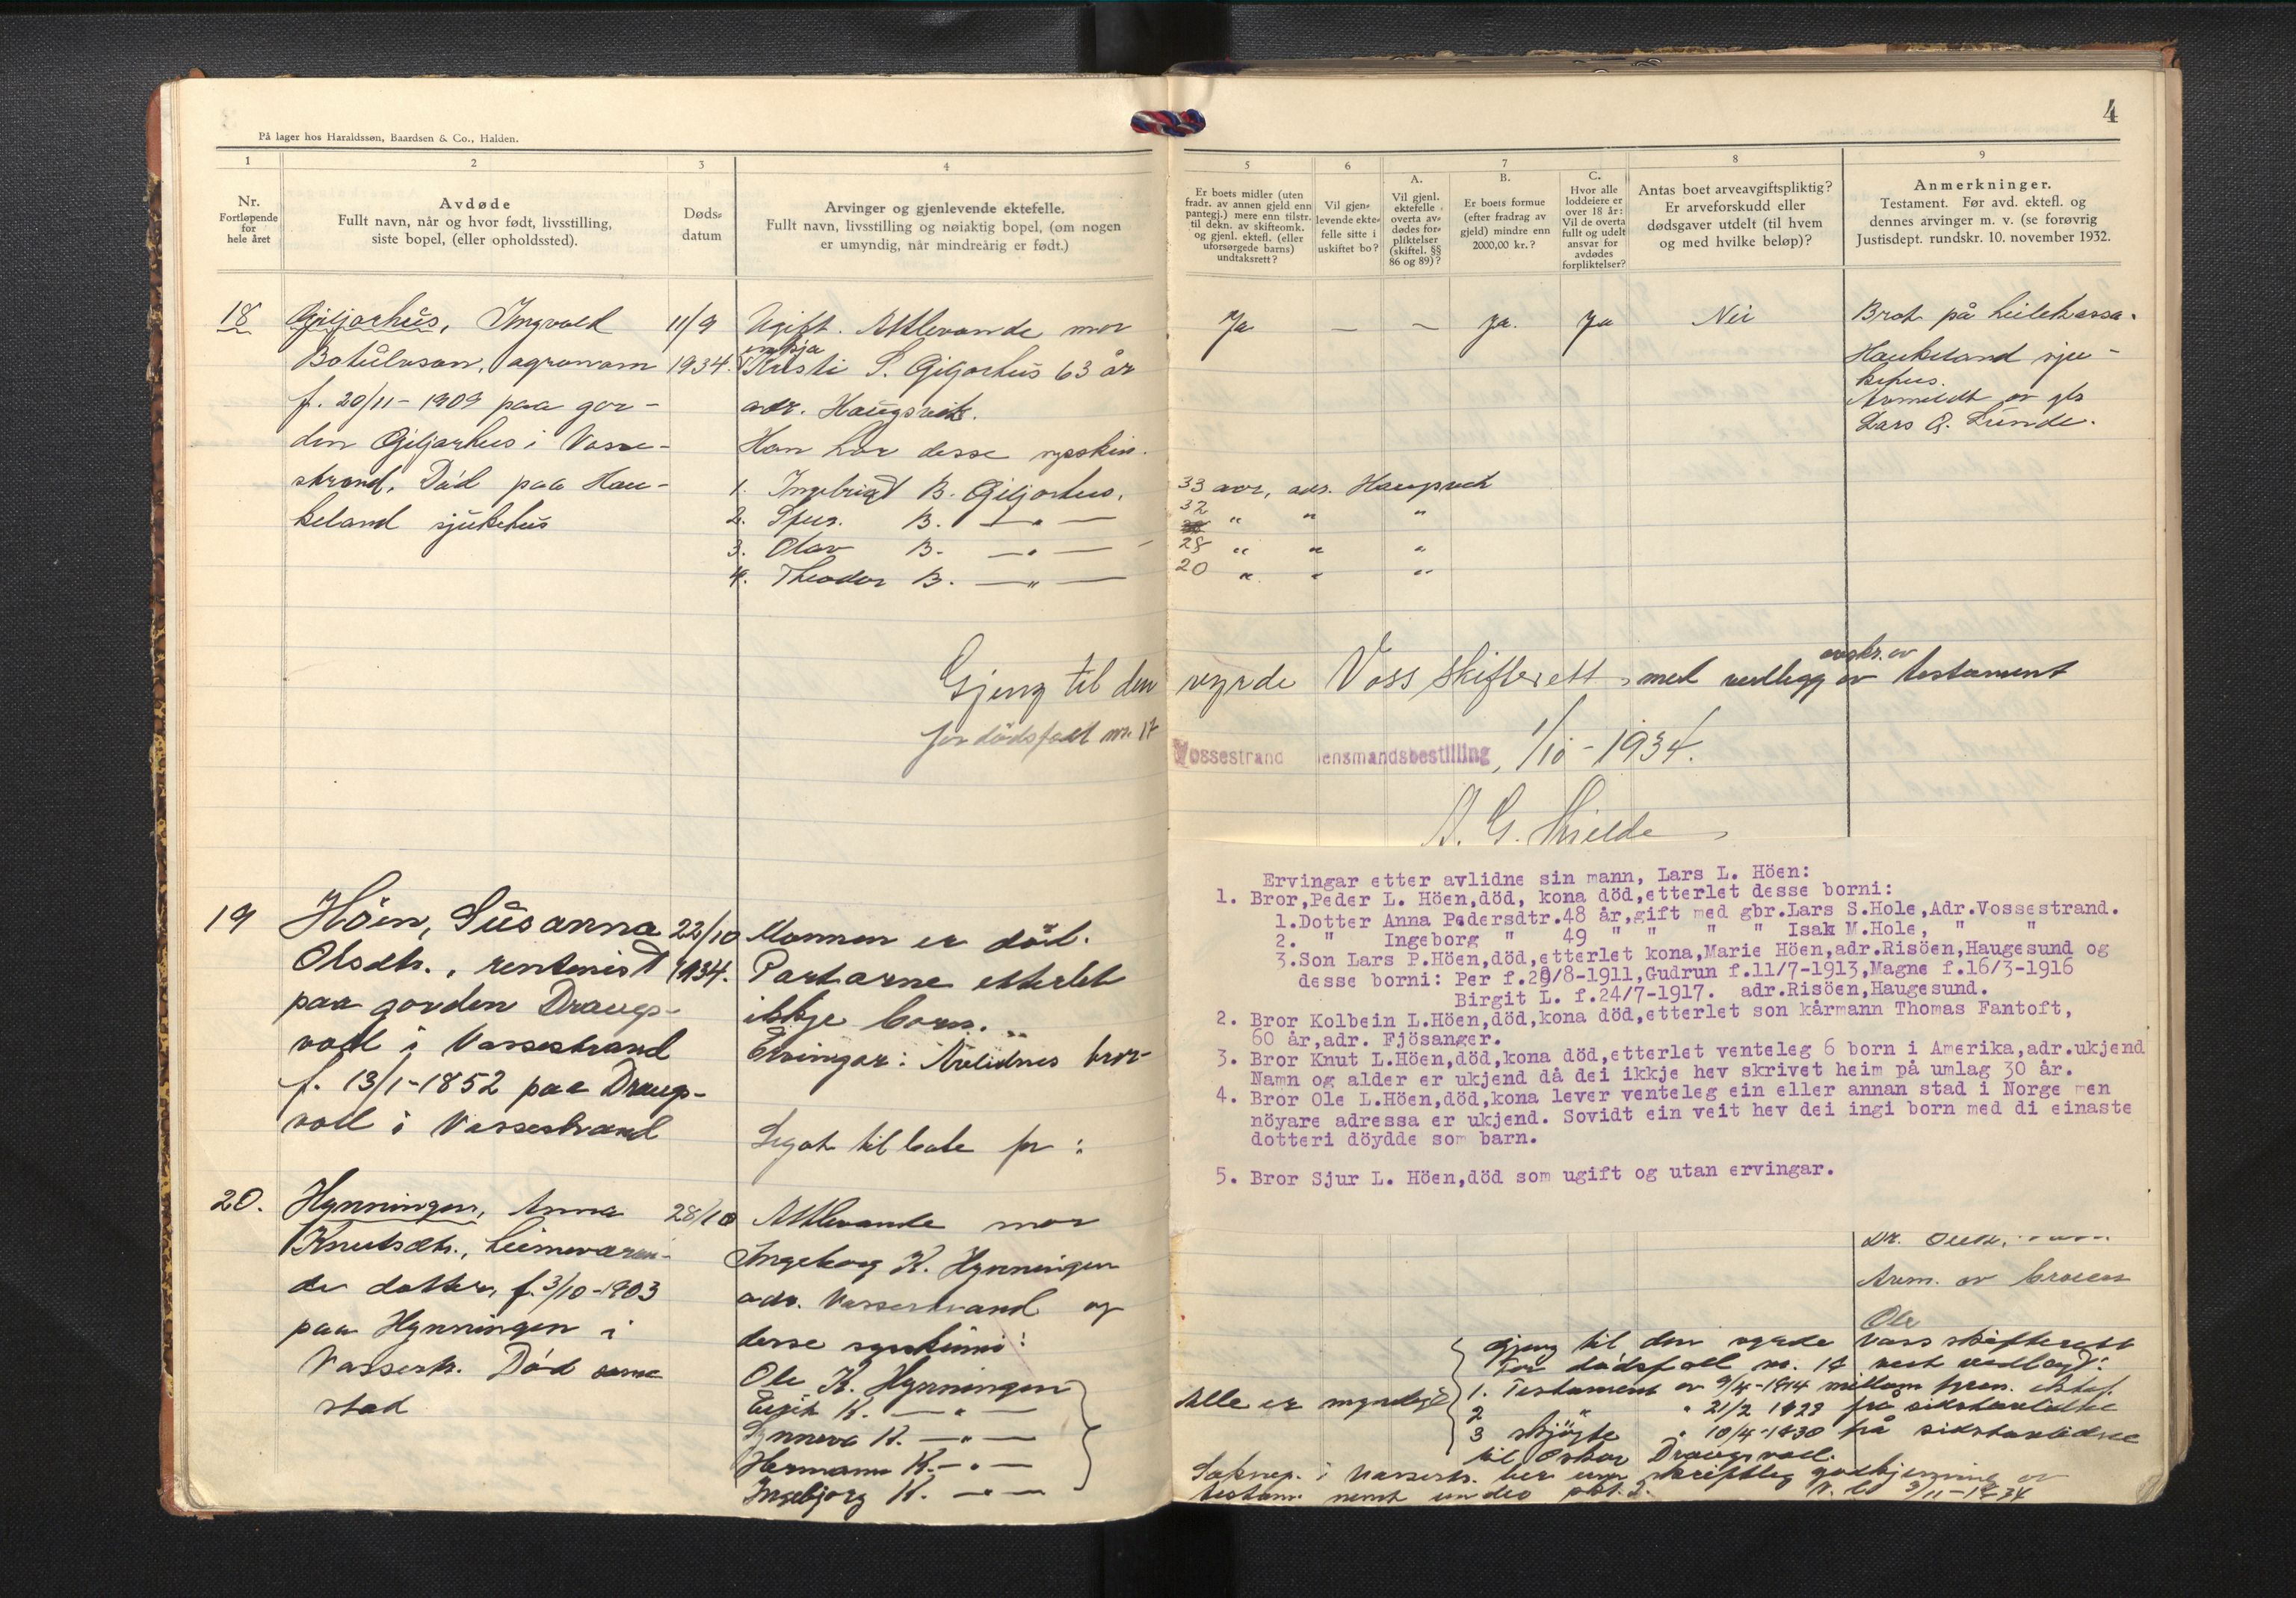 4
På lager hos Haraldssøn, Baardsen & Co., Halden.
1
2
3
4
5
6
7
8
9
Nr.
Fortløpende
for
hele året
Avdøde
Fullt navn, når og hvor født, livsstilling,
siste bopel, (eller opholdssted).
Døds-
datum
Arvinger og gjenlevende ektefelle.
Fullt navn, livsstilling og nøiaktig bopel, (om nogen
er umyndig, når mindreårig er født.)
Er boets midler (uten
fradr. av annen gjeld enn
pantegj.) mere enn tilstr.
til dekn. av skifteomk.
og gjenl. ektefl. (eller
uforsørgede barns)
undtaksrett?
Vil gjen-
levende ekte-
felle sitte i
uskiftet bo?
A.
Vil gjenl.
ektefelle
overta av-
dødes for-
pliktelser
(skiftel. §§
86 og 89)?
B.
Er boets formue
(efter fradrag av
gjeld) mindre enn
2000,00 kr.?
C.
Hvor alle
loddeiere er
over 18 år:
Vil de overta
fullt og udelt
ansvar for
avdødes
forpliktelser?
Antas boet arveavgiftspliktig?
Er arveforskudd eller
dødsgaver utdelt (til hvem
og med hvilke beløp)?
Anmerkninger.
Testament. Før avd. ektefl. og
dennes arvinger m. v. (se forøvrig
Justisdept. rundskr. 10. november 1932.
18
Giljarhus, Ingvald
Botulvson, agronom
f. 20/11-1909 paa gar-
den Giljarhus i Vosse-
strand. Död paa Hau-
keland sjukehus
11/9
1934.
Ugift. Attlevande mor
enkja
Kristi S. Giljarhus 63 år
adr. Haugsvik.
Han har desse syskin.
1. Ingebrigt B. Giljarhus,
2. Sjur B. — " —
3. Olav B. — " —
4. Theodor B. — " —
33 aar, adr. Haugsvik
32 " " "
28 " " "
20 " " "
Ja
—
—
Ja.
Ja
Nei
Brot på
Haukeland sju-
kehus.
Anmeldt av
Lars O. Lunde.
Gjeng til den vyrde Voss skifterett med vedlegg av testament
avskr. av
for dödsfall nr. 17
Vossestrand lensmandsbestilling, 1/10-1934.
19
Höen, Susanna
Olsdtr., rentenist
paa garden Draugs-
voll i Vossestrand
f. 13/1-1852 paa Draugs-
voll i Vossestrand
23/10
1934.
Mannen er död.
Partarne etterlet
ikkje born.
Ervingar: Avlidnes bror-
Ervingar etter avlidne sin mann, Lars L. Höen:
1. Bror,Peder L. Höen,död, kona död,etterlet desse borni:
1.Dotter Anna Pedersdtr.48 år,gift med gbr.Lars S.Hole,Adr.Vossestrand.
2. " Ingeborg " 49 " " " " Isak M.Hole, " "
3.Son Lars P.Höen,död,etterlet kona,Marie Höen,adr.Risöen,Haugesund og
desse borni: Per f.29/8-1911,Gudrun f.11/7-1913,Magne f.16/3-1916
Birgit L. f.24/7-1917. adr.Risöen,Haugesund.
2. Bror Kolbein L.Höen,död,kona död,etterlet son kårmann Thomas Fantoft,
60 år,adr. Fjösanger.
3. Bror Knut L.Höen,död,kona död,etterlet venteleg 6 born i Amerika,adr.ukjend
Namn og alder er ukjend då dei ikkje hev skrivet heim på umlag 30 år.
4. Bror Ole L.Höen,död,kona lever venteleg ein eller annan stad i Norge men
nöyare adressa er ukjend. Sovidt ein veit hev dei ingi born med di einaste
dotteri döydde som barn.
5. Bror Sjur L. Höen,död som ugift og utan ervingar.
20.
Hynningen, Anna
Knutsdtr., heimeværen-
de dotter, f. 3/10-1903
paa Hynningen i
Vossestr. Död same
stad
28/10
Attlevande mor
Ingeborg K. Hynningen
adr. Vossestrand og
desse syskinni:
Ole K. Hynningen
K. — " —
Synneva K. — " —
Hermann K. — " —
Ingebjorg K. — " —
Alle er myndige
Anm. av broren
Ole
Gjeng til den vyrde Voss skifterett
For dödsfall nr. 19 vert vedlagt:
1. Testament av 9/4-1914 millom
2 " " 21/2 1928 fra sistavlidne
3 skjöyte " 10/4-1930 frå sistavlidne
til Oskar Draugsvoll.
i Vossestr. ber um skriftleg godkjenning av
testam. nemt under pkt. 2.
3/11-1934